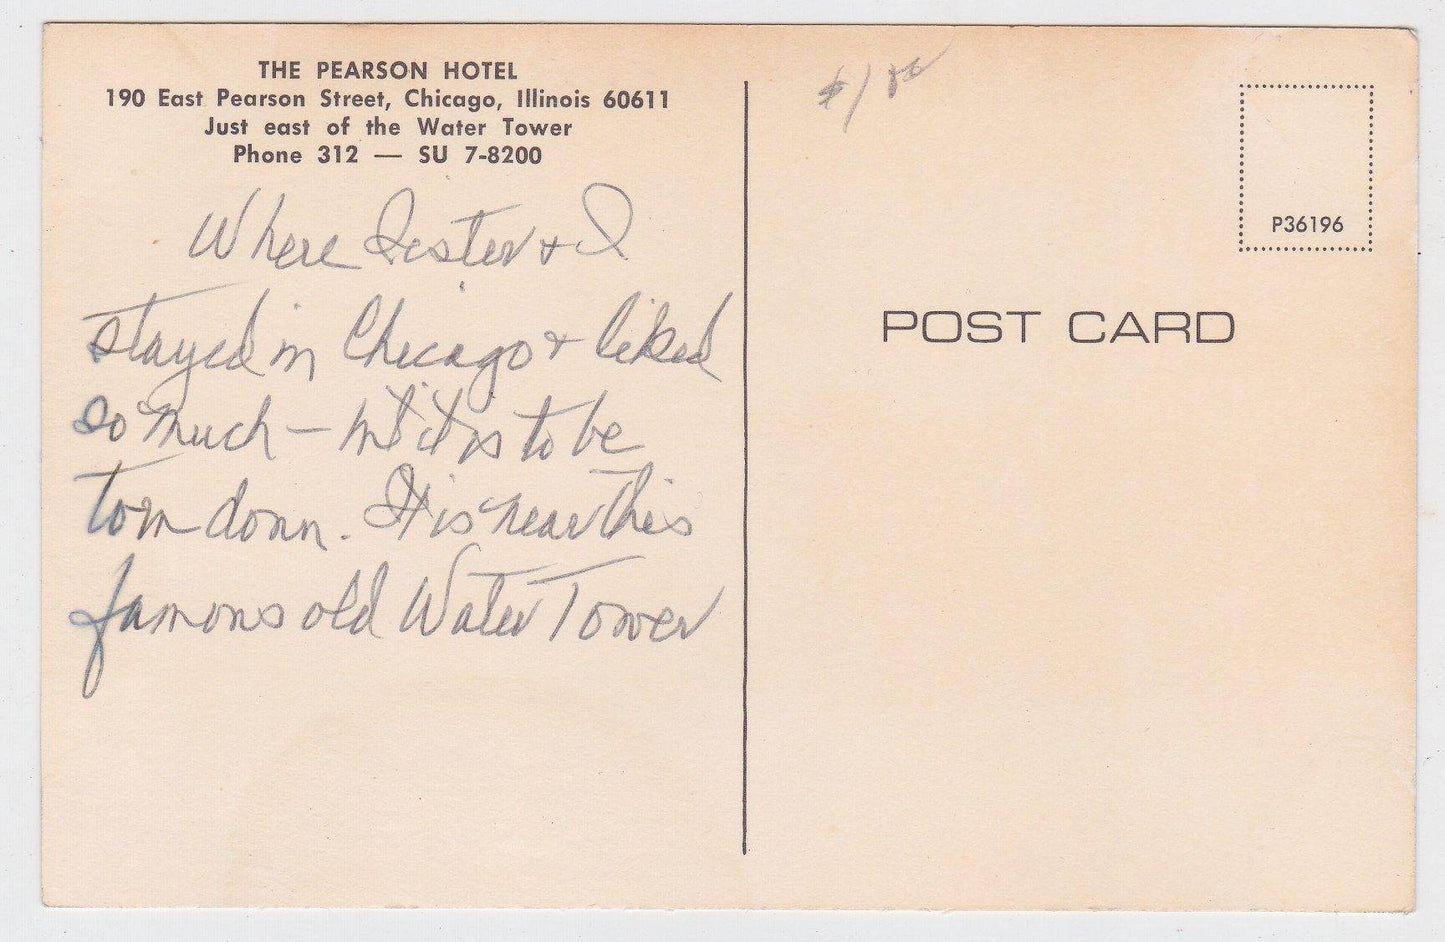 THE PEARSON HOTEL
190 East Pearson Street, Chicago, Illinois 60611
Just east of the Water Tower
Phone 312 — SU 7-8200
Where Sister + I
stayed in Chicago + liked
so much – but it is to be
torn down. It is near this
famous old Water Tower
$1.00
P36196
POST CARD